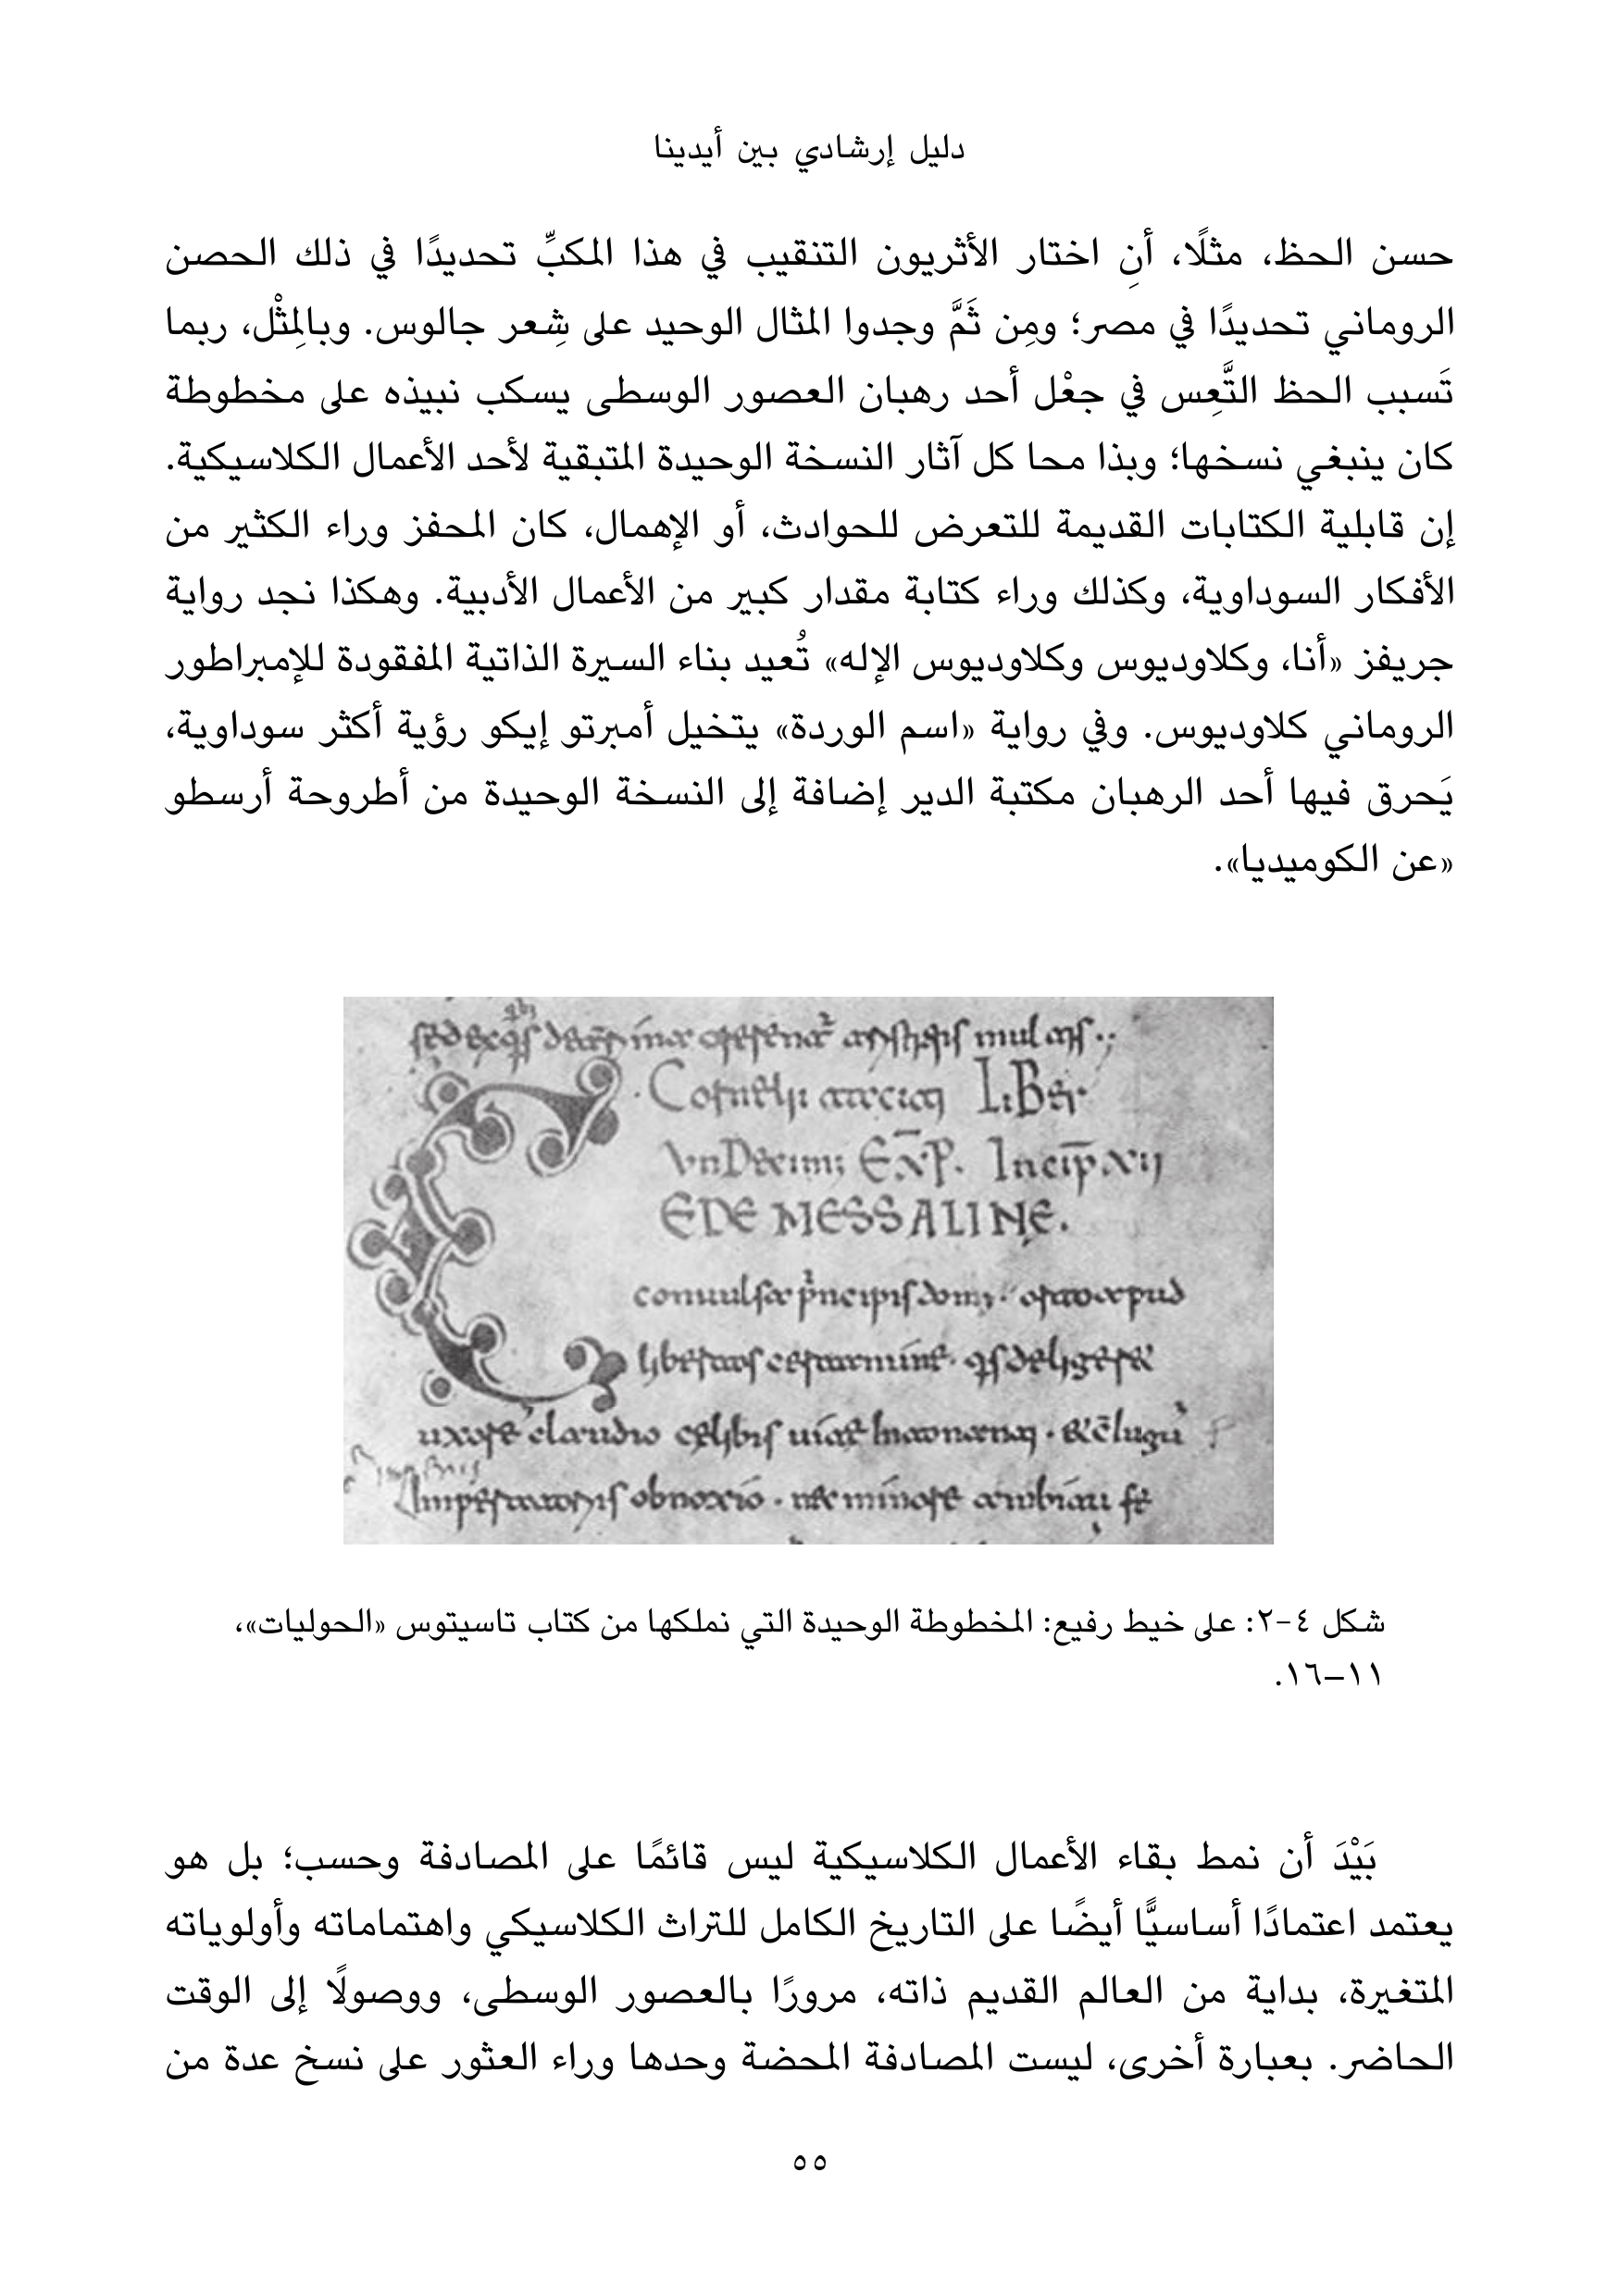 دليل إرشادي بين أيدينا
حسن الحظ، مثلًا، أنِ اختار الأثريون التنقيب في هذا المكبِّ تحديدًا في ذلك الحصن
الروماني تحديدًا في مصر؛ ومِن ثَمَّ وجدوا المثال الوحيد على شِعر جالوس. وبالمِثْل، ربما
تَسبب الحظ التَّعِس في جعْل أحد رهبان العصور الوسطى يسكب نبيذه على مخطوطة
كان ينبغي نسخها؛ وبذا محا كل آثار النسخة الوحيدة المتبقية لأحد الأعمال الكلاسيكية.
إن قابلية الكتابات القديمة للتعرض للحوادث، أو الإهمال، كان المحفز وراء الكثير من
الأفكار السوداوية، وكذلك وراء كتابة مقدار كبير من الأعمال الأدبية. وهكذا نجد رواية
جريفز «أنا، وكلاوديوس وكلاوديوس الإله» تُعيد بناء السيرة الذاتية المفقودة للإمبراطور
الروماني كلاوديوس. وفي رواية «اسم الوردة» يتخيل أمبرتو إيكو رؤية أكثر سوداوية،
يَحرق فيها أحد الرهبان مكتبة الدير إضافة إلى النسخة الوحيدة من أطروحة أرسطو
«عن الكوميديا».
LiBer
EXP. Incip XII
EDE MESSALINE.
شكل ٤-٢: على خيط رفيع: المخطوطة الوحيدة التي نملكها من كتاب تاسيتوس «الحوليات»،
١١–١٦.
بَيْدَ أن نمط بقاء الأعمال الكلاسيكية ليس قائمًا على المصادفة وحسب؛ بل هو
يعتمد اعتمادًا أساسيًّا أيضًا على التاريخ الكامل للتراث الكلاسيكي واهتماماته وأولوياته
المتغيرة، بداية من العالم القديم ذاته، مرورًا بالعصور الوسطى، ووصولًا إلى الوقت
الحاضر. بعبارة أخرى، ليست المصادفة المحضة وحدها وراء العثور على نسخ عدة من
٥٥